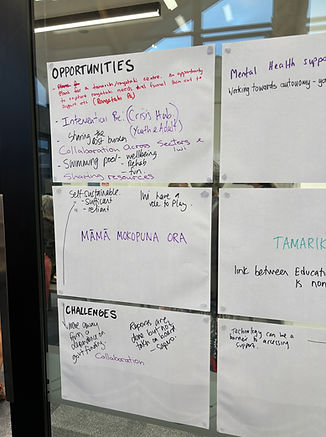 OPPORTUNITIES
for a tamariki/rangatahi centre. An opportunity
to capture rangatahi needs and funnel them out to
support
(Rangatahi
- Intervention Re: (Crisis Hub)
(Youth & Adult)
Sharing the cost burden
Collaboration across Sectors &
Iwi
- Swimming pool - wellbeing
- Rehab
- fun
Sharing resources
Self sustainable.
- Sufficient
- reliant
Iwi have a
role to Play.
MĀMĀ MOKOPUNA ORA
CHALLENGES
Move away
from a
dependence on
govt funding.
Reports are
done but not
taken on board
Collaboration
Mental Health suppo
Working towards autonomy -
TAMARIK
link between Educati
is non
Technology can be a
barrier to accessing
support.